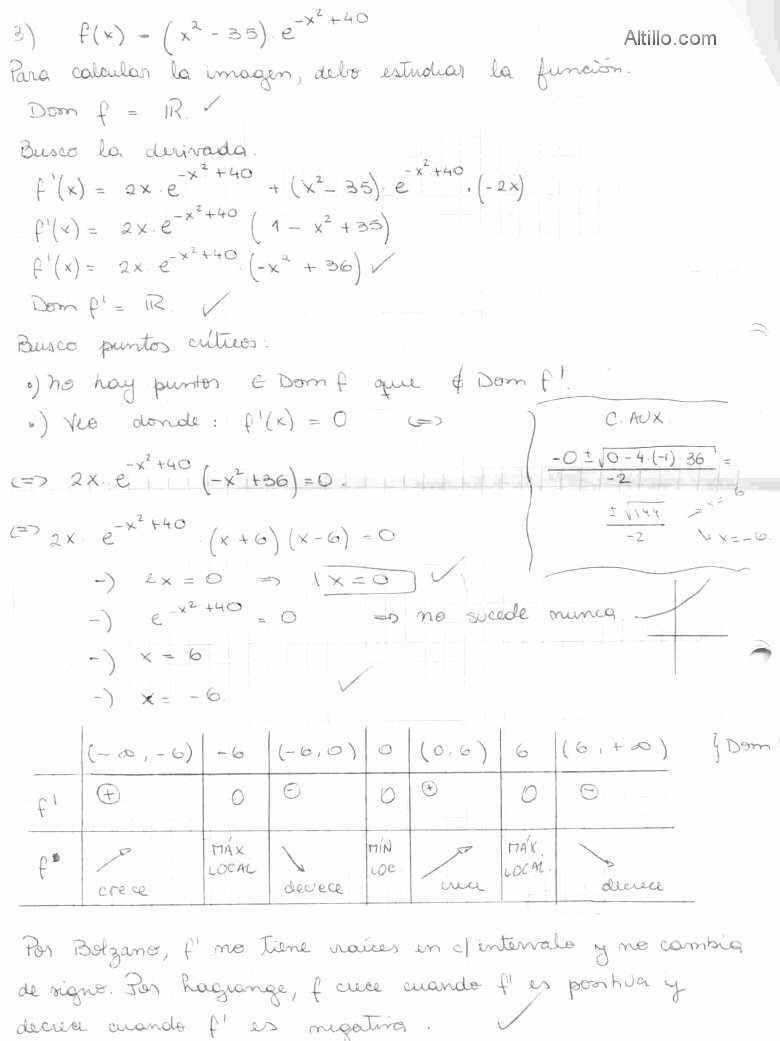 Altillo.com
3) f(x) = (x² - 35) · e^(-x² + 40)
Para calcular la imagen, debo estudiar la función.
Dom f = ℝ. ✓
Busco la derivada.
f'(x) = 2x · e^(-x² + 40) + (x² - 35) · e^(-x² + 40) · (-2x)
f'(x) = 2x · e^(-x² + 40) (1 - x² + 35)
f'(x) = 2x · e^(-x² + 40) · (-x² + 36) ✓
Dom f' = ℝ. ✓
Busco puntos críticos:
•) no hay puntos ∈ Dom f que ∉ Dom f'.
•) Veo donde: f'(x) = 0 <=>
<=> 2x · e^(-x² + 40) (-x² + 36) = 0.
<=> 2x · e^(-x² + 40) · (x + 6) (x - 6) = 0
-) 2x = 0 => x = 0 ✓
-) e^(-x² + 40) = 0 => no sucede nunca.
-) x = 6
-) x = -6. ✓
C. AUX.
-0 ± √(0 - 4 · (-1) · 36) / -2 =
± √144 / -2
x = 6
x = -6.
(-∞, -6) -6 (-6, 0) 0 (0, 6) 6 (6, +∞) {Dom
f' ⊕ 0 ⊖ 0 ⊕ 0 ⊖
f ↗ crece MÁX LOCAL ↘ decrece MÍN LOC. ↗ crece MÁX. LOCAL. ↘ decrece
Por Bolzano, f' no tiene raíces en c/ intervalo y no cambia
de signo. Por Lagrange, f crece cuando f' es positiva y
decrece cuando f' es negativa. ✓